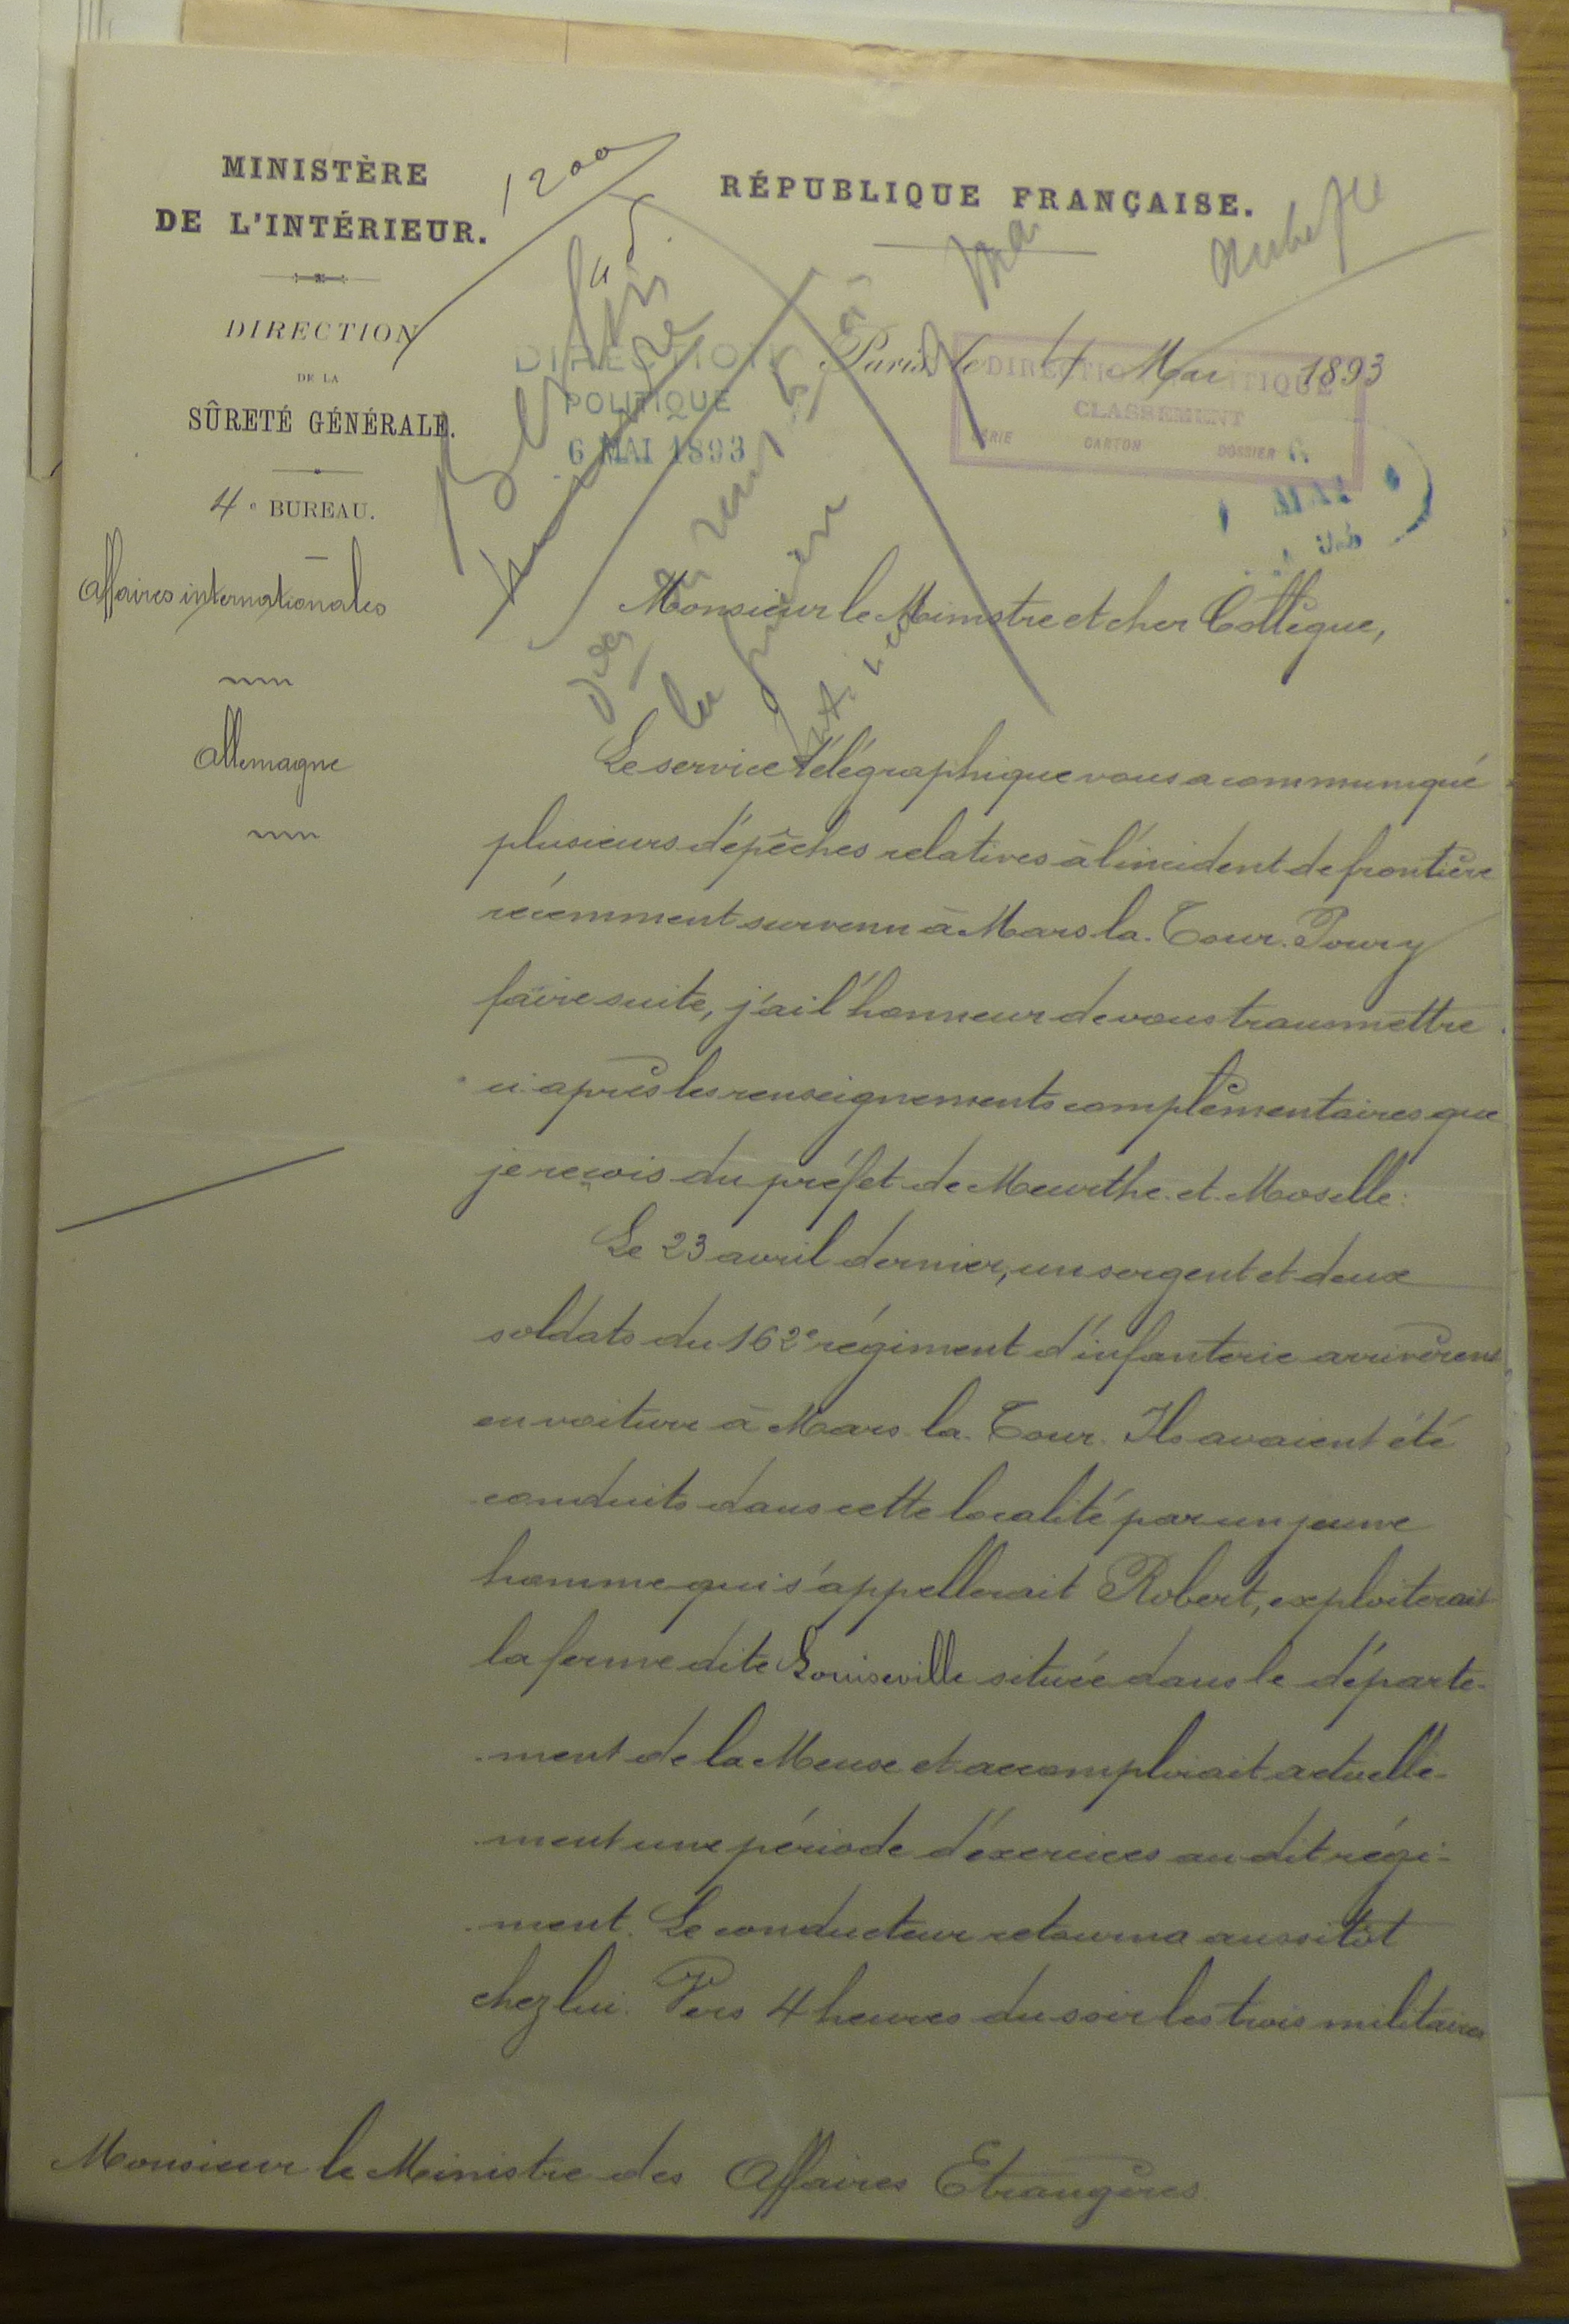 MINISTÈRE
DE L'INTÉRIEUR.
DIRECTION
DE LA
SÛRETÉ GÉNÉRALE.
4e BUREAU.
Affaires internationales
Allemagne
1200
RÉPUBLIQUE FRANÇAISE.
DIRECTION
POLITIQUE
6 MAI 1893
Paris, le 4 Mai 1893
DIRECTION POLITIQUE
CLASSEMENT
SÉRIE CARTON DOSSIER
Monsieur le Ministre et cher Collègue,
Le service télégraphique vous a communiqué
plusieurs dépêches relatives à l'incident de frontière
récemment survenu à Mars-la-Tour. Pour y
faire suite, j'ai l'honneur de vous transmettre
ci-après les renseignements complémentaires que
je reçois du préfet de Meurthe-et-Moselle:
Le 23 avril dernier, un sergent et deux
soldats du 162e régiment d'infanterie arrivèrent
en voiture à Mars-la-Tour. Ils avaient été
conduits dans cette localité par un jeune
homme qui s'appellerait Robert, exploiterait
la ferme dite Louiseville située dans le départe-
ment de la Meuse et accomplirait actuelle-
ment une période d'exercices au dit régi-
ment. Le conducteur retourna aussitôt
chez lui. Vers 4 heures du soir les trois militaires
Monsieur le Ministre des Affaires Etrangères.